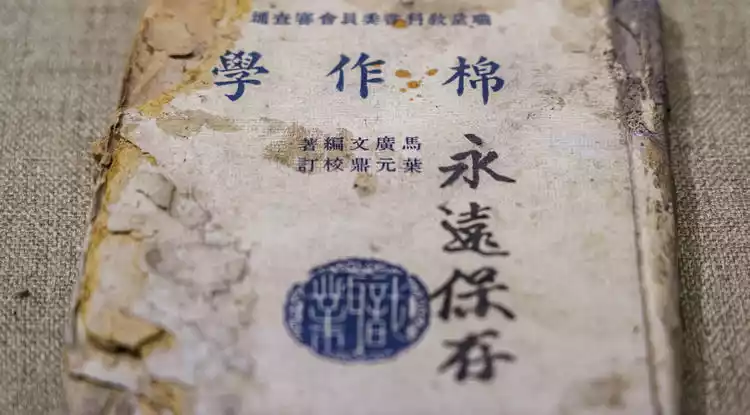 職業教科書委員會審查通
棉作學
馬廣文編著
葉元鼎校訂
永遠保存
職業